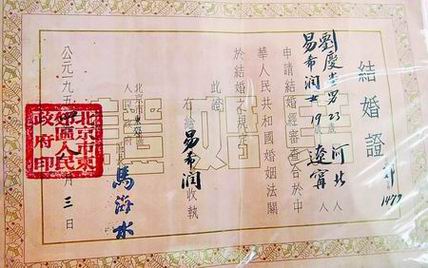 結婚證
1477
劉慶 男 23 歲 河北 人
易希润 女 19 歲 遼寧 人
申請結婚經審查合於中
華人民共和國婚姻法關
於結婚之規定
此證
右給 易希润 收執
北京市東
人民 長 馬海水
公元一九五 月三日
北京市東
郊區人民
政府印